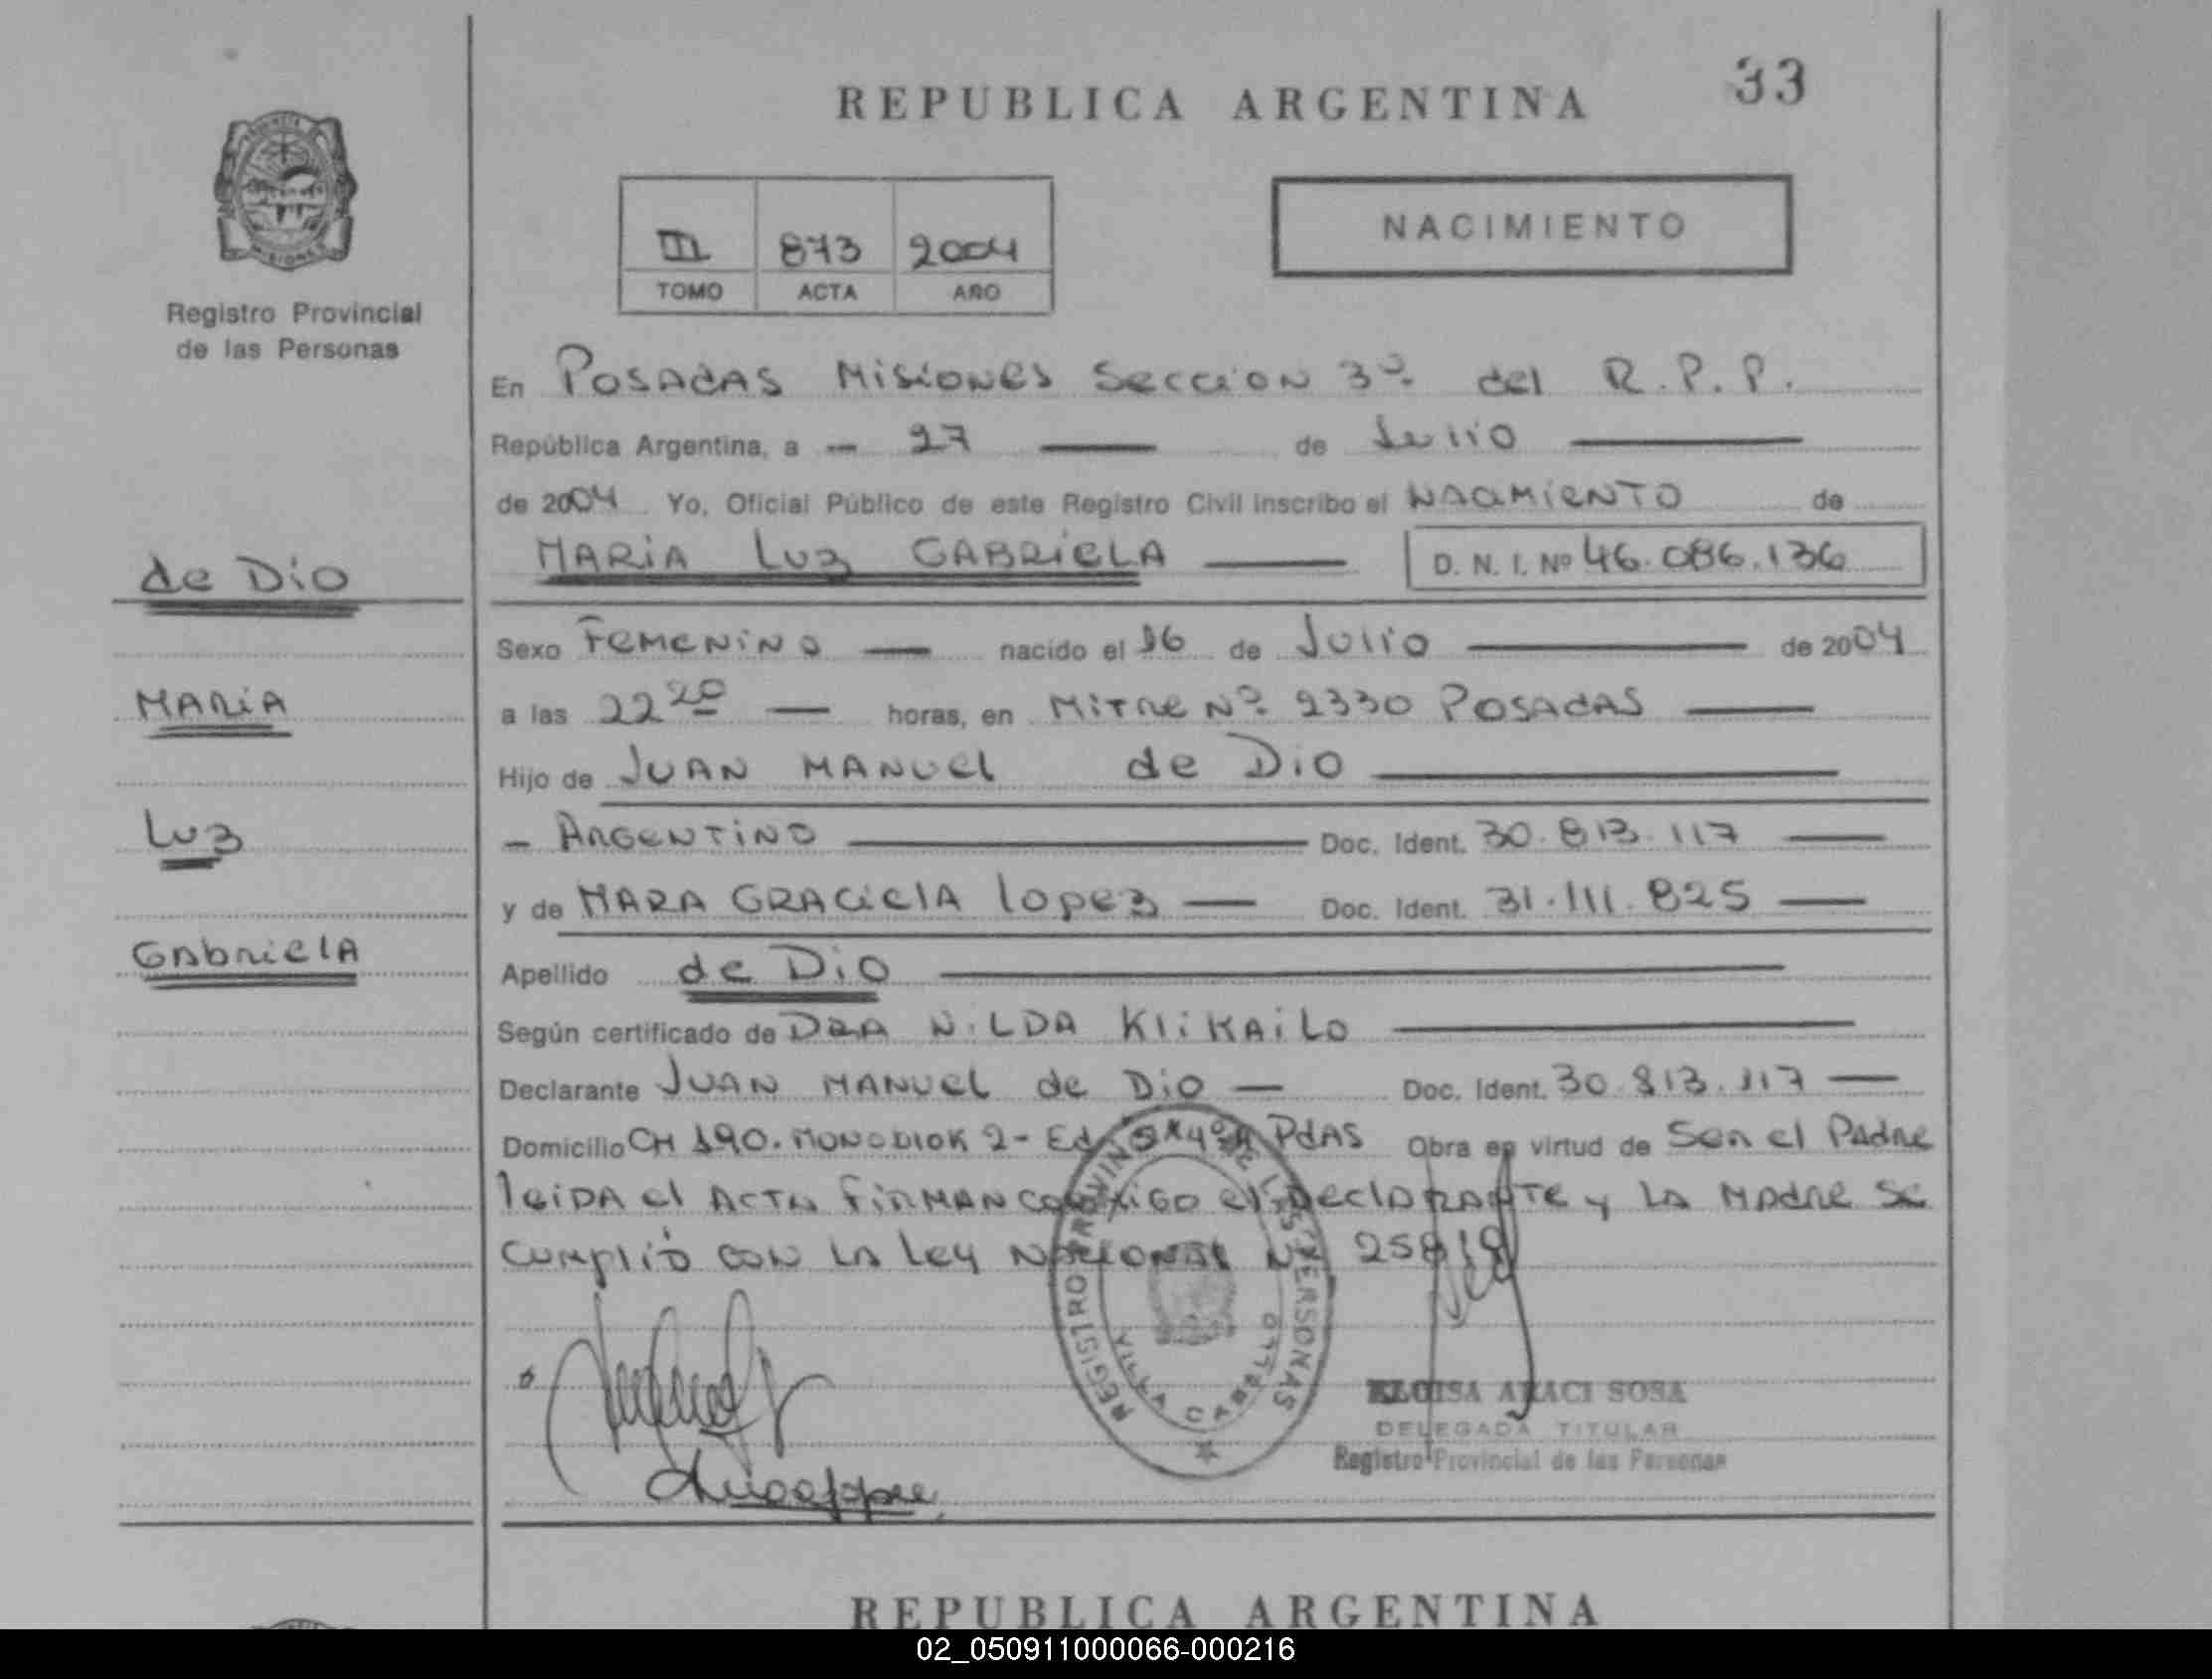 REPUBLICA ARGENTINA
33
III 873 2004
TOMO ACTA AÑO
NACIMIENTO
Registro Provincial
de las Personas
En Posadas Misiones Seccion 3ª del R.P.P.
República Argentina, a - 27 — de Julio —
de 2004 Yo, Oficial Público de este Registro Civil inscribo el Nacimiento de
Maria Luz Gabriela — D. N. I. Nº 46.086.136
de Dio
Maria
Luz
Gabriela
Sexo Femenino — nacido el 16 de Julio — de 2004
a las 22 20 — horas, en Mitre Nº 2330 Posadas —
Hijo de Juan Manuel de Dio —
- Argentino — Doc. Ident. 30.813.117 —
y de Mara Graciela Lopez — Doc. Ident. 31.111.825 —
Apellido de Dio —
Según certificado de Dra Nilda Klikailo —
Declarante Juan Manuel de Dio — Doc. Ident. 30.813.117 —
Domicilio CH 190. Monoblok 2 - Pdas Obra en virtud de Ser el Padre
leida el Acta firman conmigo el Declarante y la Madre se
cumplió con la Ley Nacional Nº
REGISTRO PROVINCIAL DE LAS PERSONAS
VILLA CABELLO
ELOISA ARACI SOSA
DELEGADA TITULAR
Registro Provincial de las Personas
REPUBLICA ARGENTINA
02_050911000066-000216